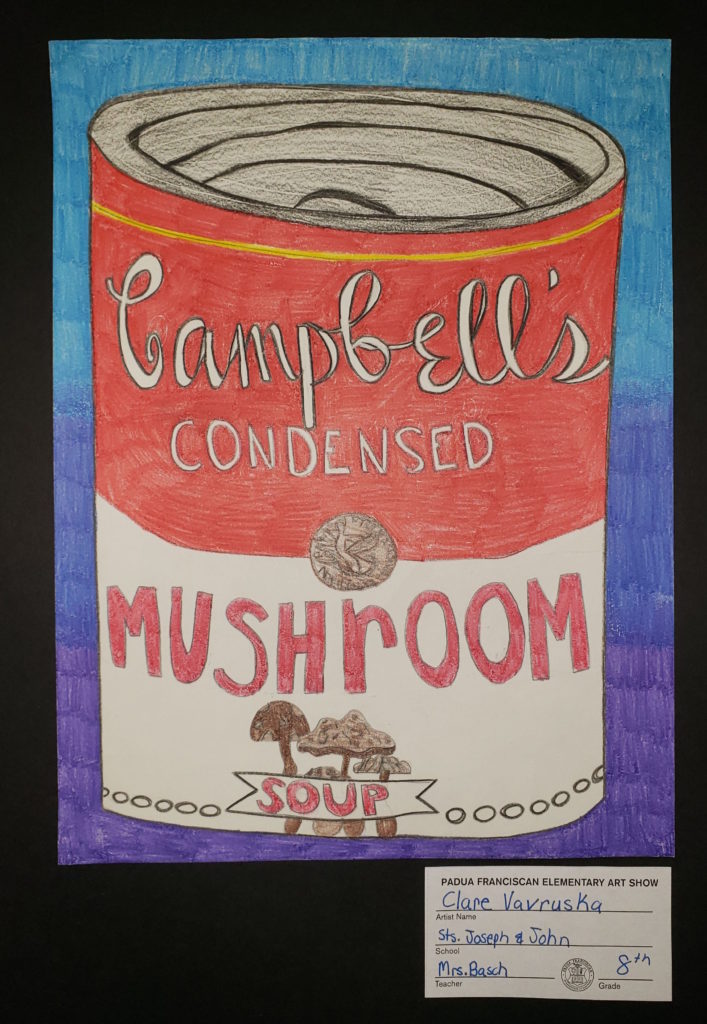 Campbell's
CONDENSED
MUSHrOOM
SOUP
PADUA FRANCISCAN ELEMENTARY ART SHOW
Clare Vavruska
Artist Name
Sts. Joseph & John
School
Mrs. Basch
8th
Teacher
Grade